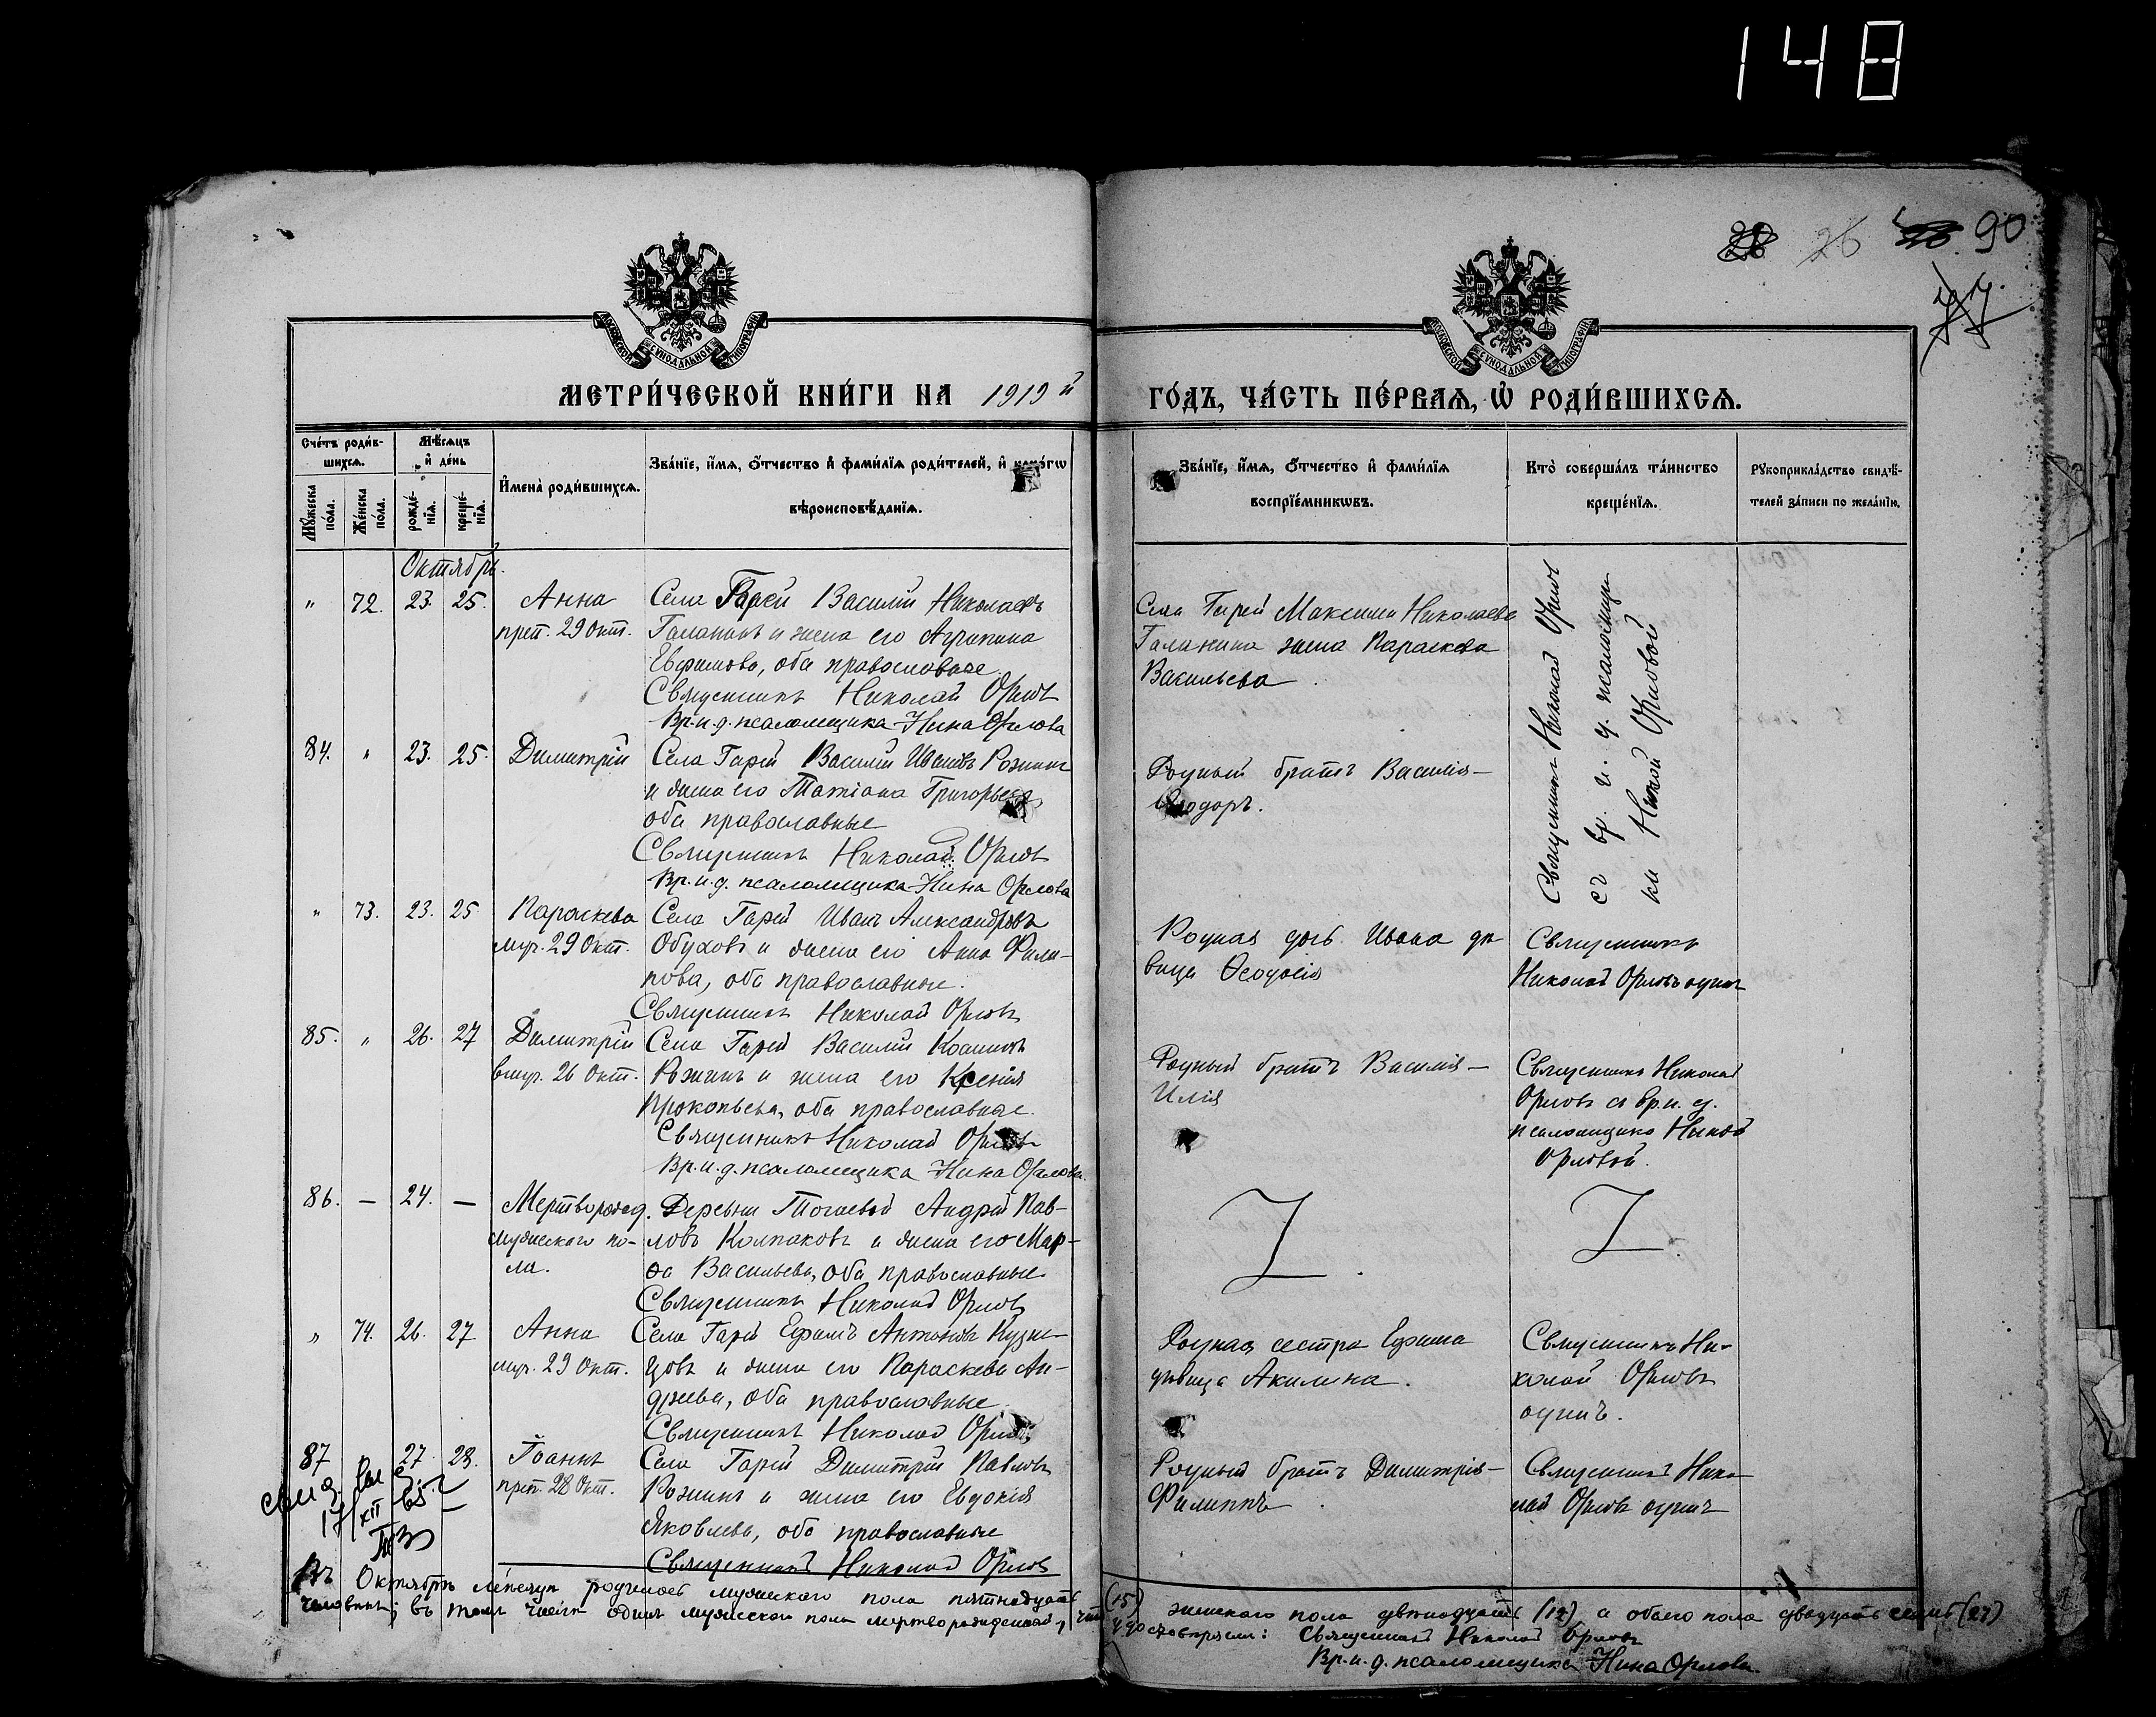 148
26 90
МОСКОВСКОЙ СѴНОДАЛЬНОЙ ТИПОГРАФІИ
МОСКОВСКОЙ СѴНОДАЛЬНОЙ ТИПОГРАФІИ
МЕТРИ́ЧЕСКОЙ КНИ́ГИ НА 1919 й ГО́ДЪ, ЧА́СТЬ ПЕ́РВАЯ, Ѿ РОДИ́ВШИХСЯ.
Сче́тъ роди́в-
шихся.
Му́жеска по́ла.
Же́нска по́ла.
Мѣ́сяцъ и҆ де́нь
рожде́-
нїя.
креще́-
нїя.
И҆мена̀ роди́вшихся.
Зва́нїе, и҆́мя, ѻ҆́тчество и҆ фами́лїя роди́телей, и҆ како́гѡ
вѣроисповѣ́данїя.
Зва́нїе, и҆́мя, ѻ҆́тчество и҆ фами́лїя
воспрїе́мникѡвъ.
Кто̀ соверша́лъ та́инство
креще́нїя.
Рꙋкоприкла́дство свидѣ́-
телей за́писи по жела́нїю.
Октябрь.
" 72. 23. 25. Анна
преп. 29 Окт.
Села Гарей Василій Николаевъ
Галанинъ и жена его Агрипина
Евфимова, оба православные
Священникъ Николай Орловъ
Вр. и. д. псаломщика Нина Орлова
Села Гарей Максима Николаева
Галанина жена Параскева
Васильева
Священникъ Николай Орловъ
съ вр. и. д. псаломщи-
ки Ниной Орловой
84. " 23. 25. Димитрій
Села Гарей Василій Ивановъ Рожинъ
и жена его Татіана Григорьева
оба православные
Священникъ Николай Орловъ
Вр. и. д. псаломщика Нина Орлова
Родный братъ Василія —
Ѳеодоръ.
" 73. 23. 25. Параскева
муч. 29 Окт.
Села Гарей Иванъ Александровъ
Обуховъ и жена его Анна Фили-
пова, оба православные.
Священникъ Николай Орловъ
Родная дочь Ивана дѣ-
вица Ѳеодосія
Священникъ
Николай Орловъ одинъ
85. " 26. 27 Димитрій
вмч. 26 Окт.
Села Гарей Василій Косминъ
Рожинъ и жена его Ксенія
Прокопьева, оба православные.
Священникъ Николай Орловъ
Вр. и. д. псаломщика Нина Орлова.
Родный братъ Василія —
Илія
Священникъ Николай
Орловъ съ вр. и. д.
псаломщика Ниной
Орловой.
86. — 24. — Мертворожд.
мужескаго по-
ла.
Деревни Тогаевой Андрей Пав-
ловъ Колпаковъ и жена его Мар-
ѳа Васильева, оба православные.
Священникъ Николай Орловъ
" 74. 26. 27 Анна
муч. 29 Окт.
Села Гарей Ефимъ Антоновъ Кузне-
цовъ и жена его Параскева Ан-
дреева, оба православные
Священникъ Николай Орловъ
Родная сестра Ефима
дѣвица Акилина.
Священникъ Ни-
колай Орловъ
одинъ.
87 27 28. Іоаннъ
преп. 28 Окт.
Села Гарей Димитрій Павловъ
Рожинъ и жена его Евдокія
Яковлева, оба православные
Священникъ Николай Орловъ
Родный братъ Димитрія —
Филиппъ.
Священникъ Нико-
лай Орловъ одинъ
17/XII
Въ Октябрѣ мѣсяцѣ родилось мужескаго пола пятнадцать (15) женскаго пола двѣнадцать (12), а обоего пола двадцать семь (27)
человѣкъ; въ томъ числѣ одинъ мужескаго пола мертворожденный, удостовѣряемъ: Священникъ Николай Орловъ
Вр. и. д. псаломщика Нина Орлова.